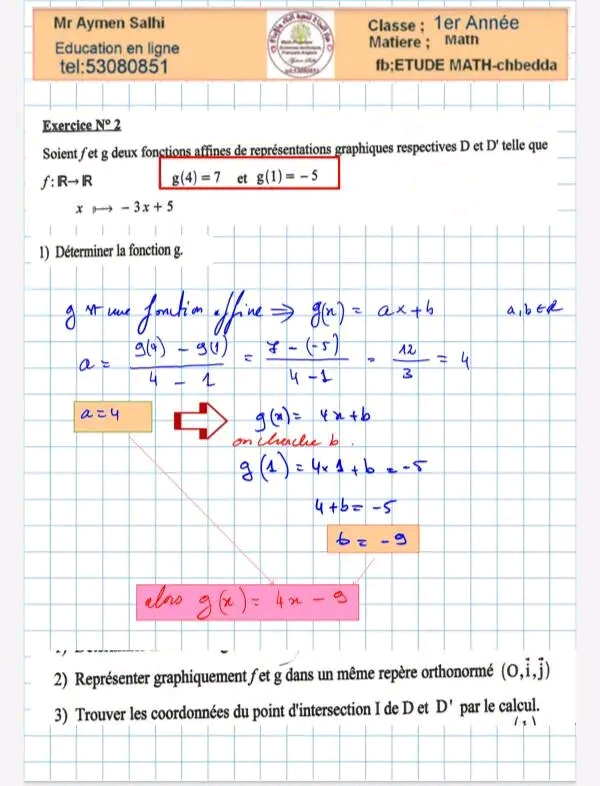 Mr Aymen Salhi
Education en ligne
tel:53080851
Classe ; 1er Année
Matiere ; Math
fb;ETUDE MATH-chbedda
Exercice N° 2
Soient f et g deux fonctions affines de représentations graphiques respectives D et D' telle que
f : ℝ→ℝ g(4) = 7 et g(1) = – 5
x ⟼ – 3x + 5
1) Déterminer la fonction g.
g est une fonction affine ⇒ g(x) = ax + b a, b ∈ ℝ
a = (g(4) – g(1))/(4 – 1) = (7 – (-5))/(4 – 1) = 12/3 = 4
a = 4 g(x) = 4x + b
on cherche b.
g(1) = 4x1 + b = -5
4 + b = -5
b = -9
alors g(x) = 4x – 9
2) Représenter graphiquement f et g dans un même repère orthonormé (O,i,j)
3) Trouver les coordonnées du point d'intersection I de D et D' par le calcul.